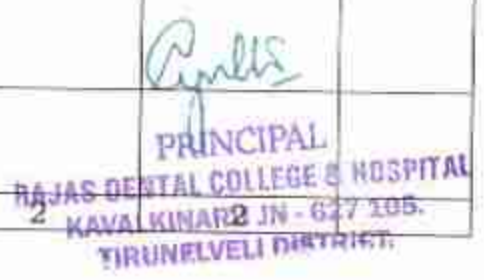 PRINCIPAL
RAJAS DENTAL COLLEGE & HOSPITAL
2 2
KAVALKINARU JN - 627 105.
TIRUNELVELI DISTRICT.